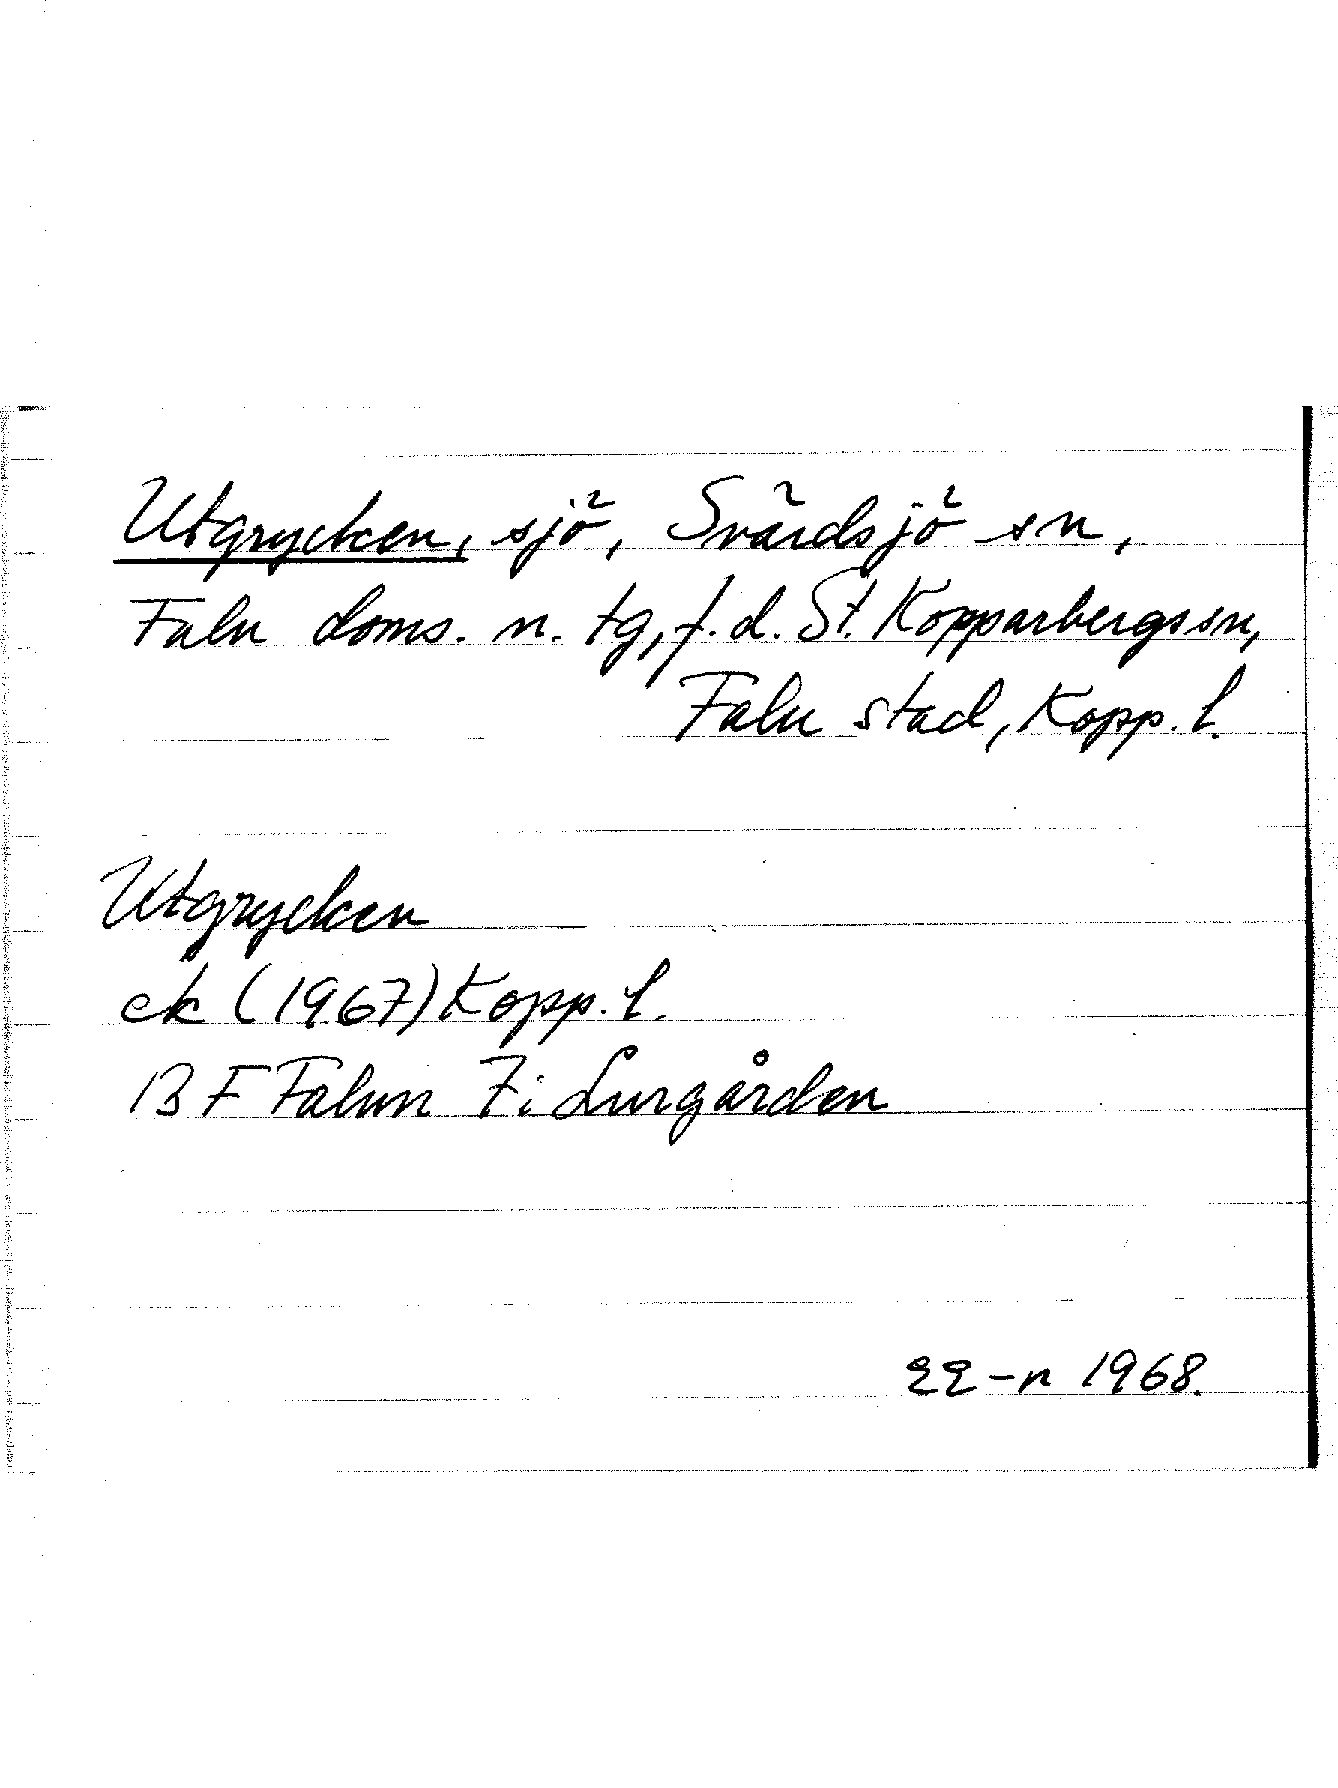 Utgrycken, sjö, Svärdsjö sn,
Falu doms. n. tg, f.d. St. Kopparbergs sn,
Falu stad, Kopp. l.
Utgrycken
ek (1967) Kopp. l.
13 F Falun 7i Lurgården
1968.